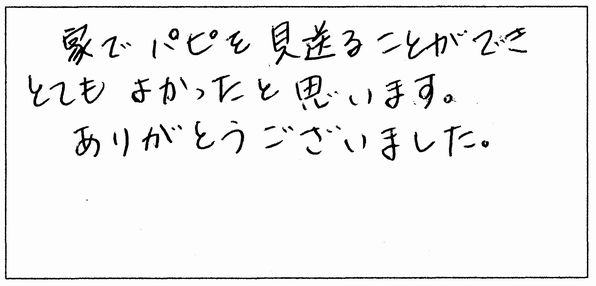 家でパピを見送ることができ
とてもよかったと思います。
ありがとうございました。